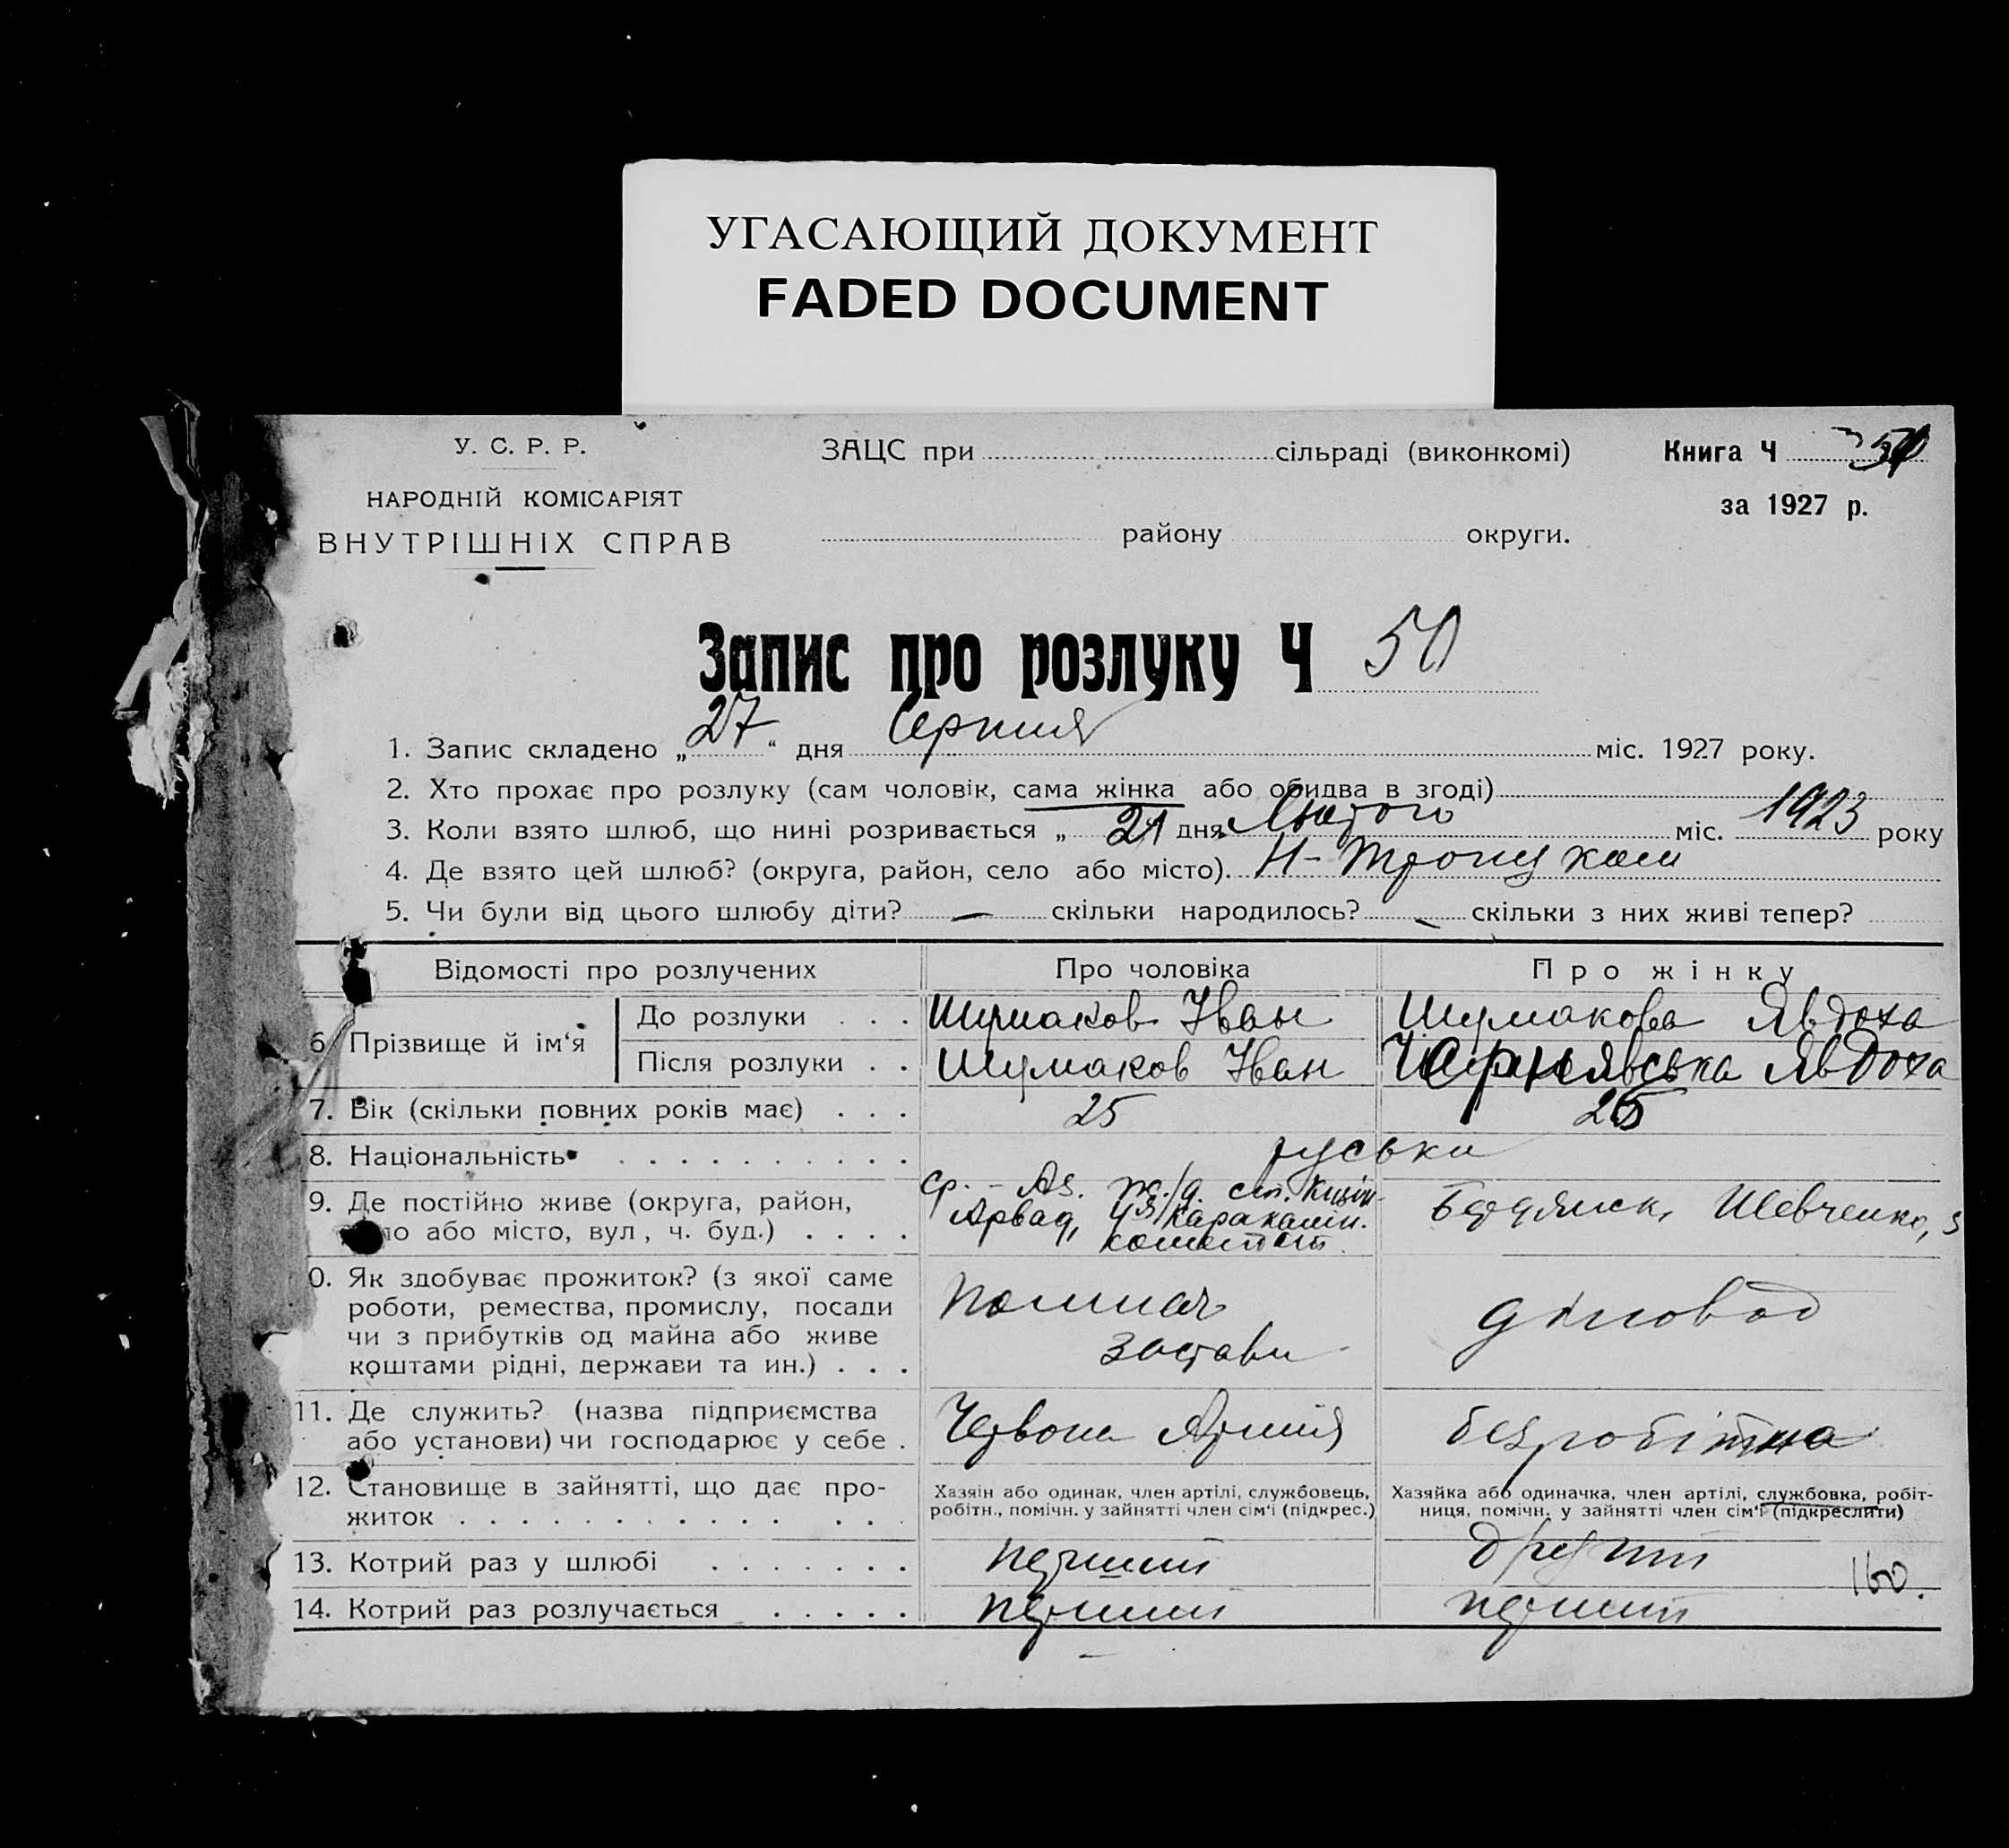 УГАСАЮЩИЙ ДОКУМЕНТ
FADED DOCUMENT
У. С. Р. Р.
НАРОДНІЙ КОМІСАРІЯТ
ВНУТРІШНІХ СПРАВ
ЗАЦС при сільраді (виконкомі)
району округи.
Книга Ч
за 1927 р.
Запис про розлуку Ч 50
1. Запис складено „27“ дня Серпня міс. 1927 року.
2. Хто прохає про розлуку (сам чоловік, сама жінка або обидва в згоді)
3. Коли взято шлюб, що нині розривається „21 дня Лютого міс. 1923 року
4. Де взято цей шлюб? (округа, район, село або місто). Н-
5. Чи були від цього шлюбу діти? — скільки народилось? — скільки з них живі тепер?
Відомості про розлучених Про чоловіка Про жінку
6. Прізвище й ім‘я До розлуки . . . Шумаков Іван Шумакова Явдоха
Після розлуки . . Шумаков Іван Чернявська Явдоха
7. Вік (скільки повних років має) . . . 25 25
8. Національність . . . . . . . . . . руськи
9. Де постійно живе (округа, район, ло або місто, вул, ч. буд.) . . . .
Ср. - Аз. ж./д. ст.
коменит
Шевченко, 5
0. Як здобуває прожиток? (з якої саме
роботи, ремества, промислу, посади
чи з прибутків од майна або живе
коштами рідні, держави та ин.) . . .
застави
діловод
11. Де служить? (назва підприємства
або установи) чи господарює у себе .
Червона Армія
безробітна
12. Становище в зайнятті, що дає про-
житок . . . . . . . . . . . . . .
Хазяін або одинак, член артілі, службовець,
робітн., помічн. у зайнятті член сім‘і (підкрес.)
Хазяйка або одиначка, член артілі, службовка, робіт-
ниця, помічн. у зайнятті член сім‘і (підкреслити)
13. Котрий раз у шлюбі . . . . . . . перший другий
14. Котрий раз розлучається . . . . . перший перший
160.